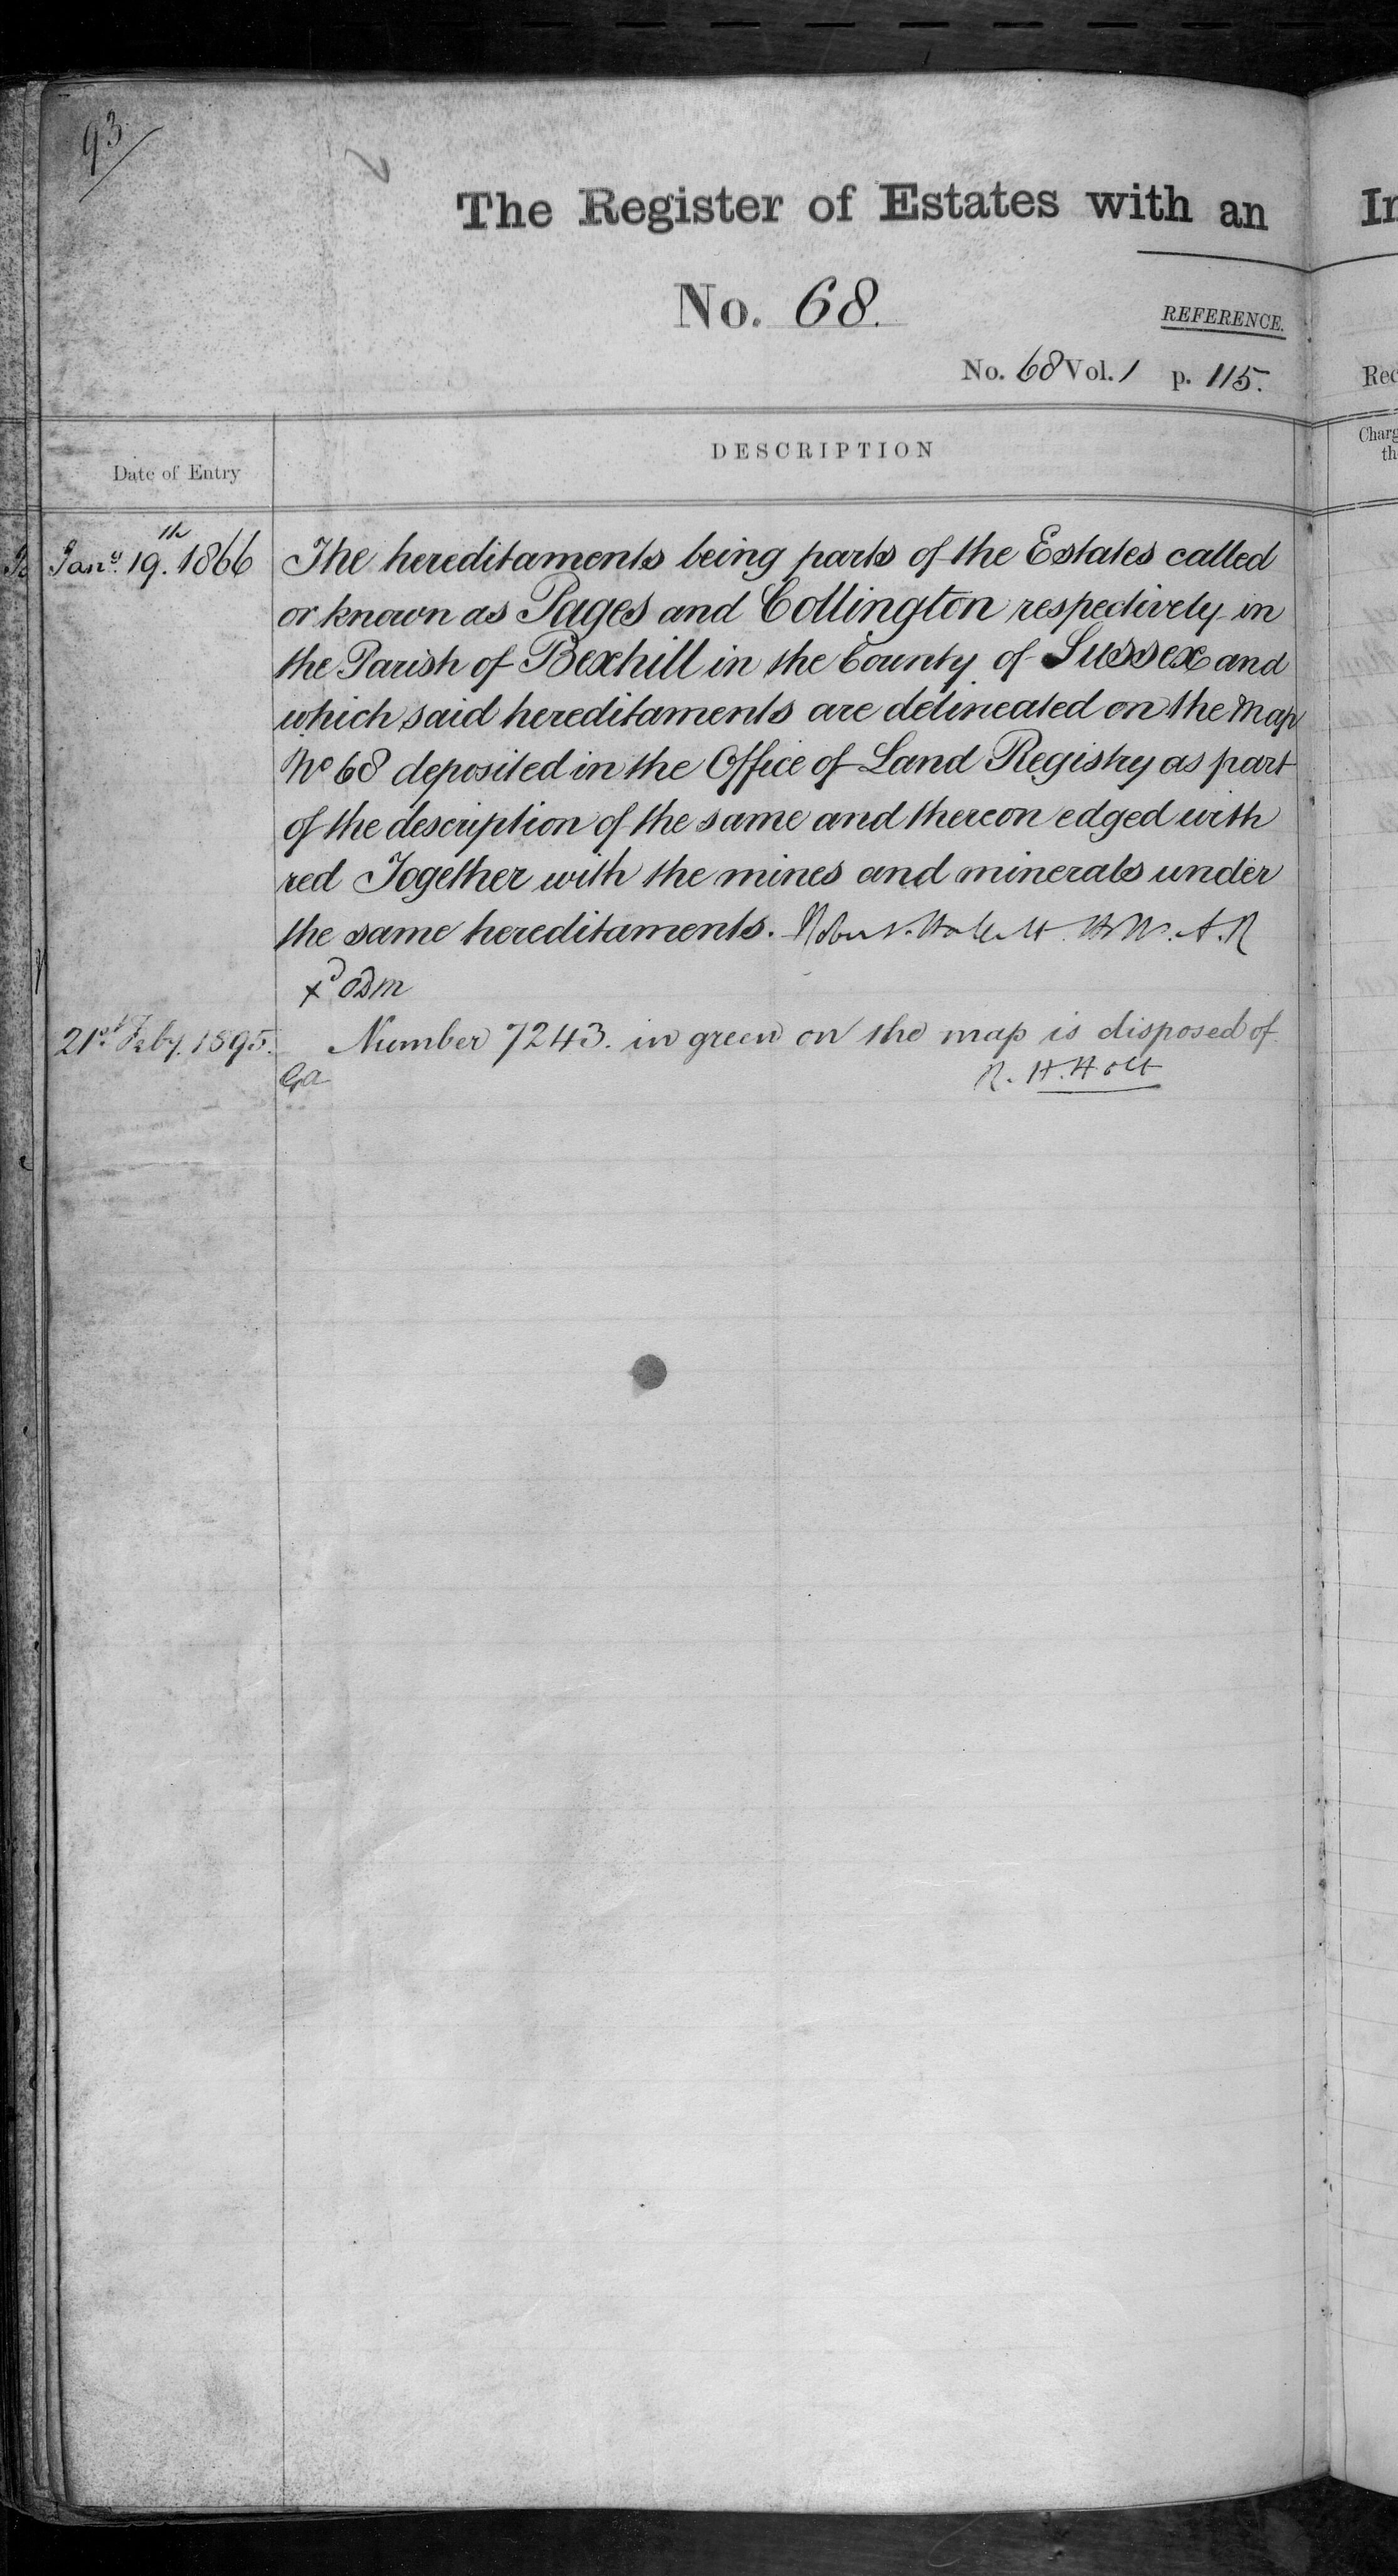 93
The Register of Estates with an
No. 68.
REFERENCE.
No. 68 Vol. 1 p. 115.
Date of Entry
DESCRIPTION
Jany. 19th. 1866
The hereditaments being parts of the Estates called
or known as Pages and Collington respectively in
the Parish of Bexhill in the County of Sussex and
which said hereditaments are delineated on the Map
No 68 deposited in the Office of Land Registry as part
of the description of the same and thereon edged with
red Together with the mines and minerals under
the same hereditaments.
21st Feby. 1895.
Number 7243. in green on the map is disposed of
R. H. Holt
Rec
Charg
th